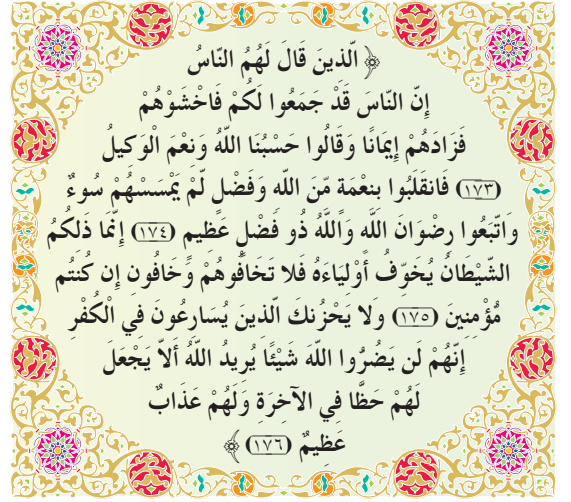 ﴿ الَّذِينَ قَالَ لَهُمُ النَّاسُ
إِنَّ النَّاسَ قَدْ جَمَعُوا لَكُمْ فَاخْشَوْهُمْ
فَزَادَهُمْ إِيمَانًا وَقَالُوا حَسْبُنَا اللَّهُ وَنِعْمَ الْوَكِيلُ
(١٧٣) فَانقَلَبُوا بِنِعْمَةٍ مِّنَ اللَّهِ وَفَضْلٍ لَّمْ يَمْسَسْهُمْ سُوءٌ
وَاتَّبَعُوا رِضْوَانَ اللَّهِ وَاللَّهُ ذُو فَضْلٍ عَظِيمٍ (١٧٤) إِنَّمَا ذَلِكُمُ
الشَّيْطَانُ يُخَوِّفُ أَوْلِيَاءَهُ فَلا تَخَافُوهُمْ وَخَافُونِ إِن كُنتُم
مُّؤْمِنِينَ (١٧٥) وَلا يَحْزُنكَ الَّذِينَ يُسَارِعُونَ فِي الْكُفْرِ
إِنَّهُمْ لَن يَضُرُّوا اللَّهَ شَيْئًا يُرِيدُ اللَّهُ أَلاَّ يَجْعَلَ
لَهُمْ حَظًّا فِي الآخِرَةِ وَلَهُمْ عَذَابٌ
عَظِيمٌ (١٧٦) ﴾